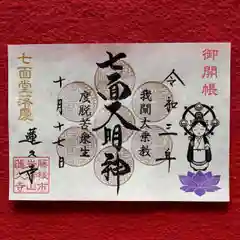 御開帳
令和三年
我聞大乗教
七面大明神
度脱苦衆生
十月十七日
七面堂落慶
蓮久寺